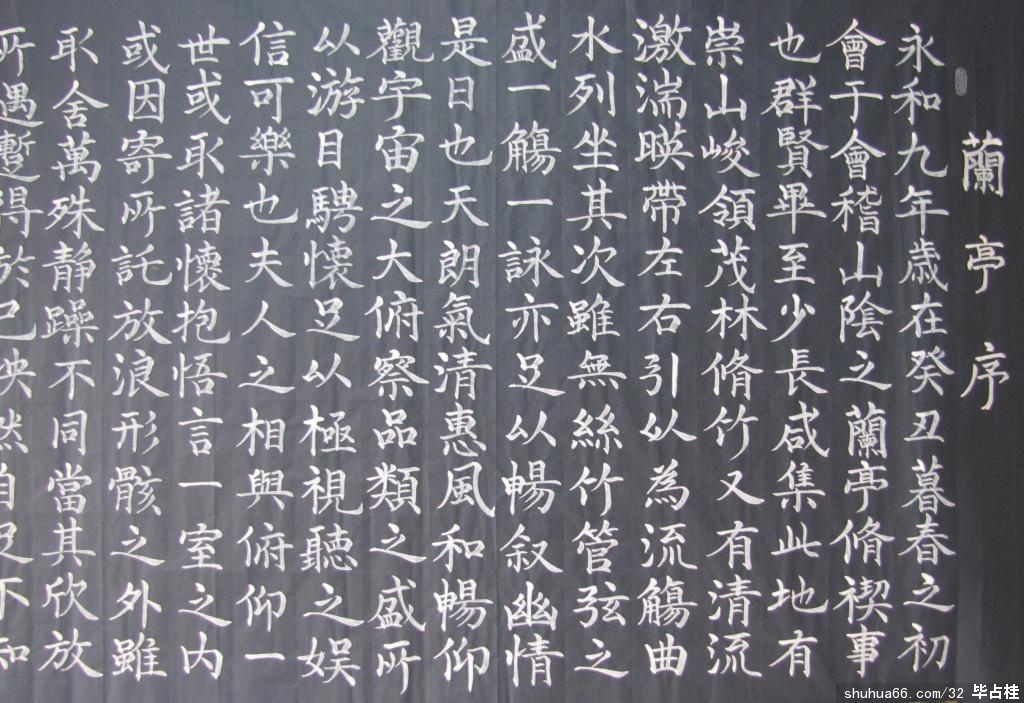 蘭亭序
永和九年歲在癸丑暮春之初
會于會稽山陰之蘭亭脩禊事
也群賢畢至少長咸集此地有
崇山峻領茂林脩竹又有清流
激湍暎帶左右引以為流觴曲
水列坐其次雖無絲竹管弦之
盛一觴一詠亦足以暢叙幽情
是日也天朗氣清惠風和暢仰
觀宇宙之大俯察品類之盛所
以游目騁懷足以極視聽之娛
信可樂也夫人之相與俯仰一
世或取諸懷抱悟言一室之內
或因寄所託放浪形骸之外雖
取舍萬殊静躁不同當其欣放
所遇蹔得於己怏然自足不知
shuhua66.com/32 毕占桂